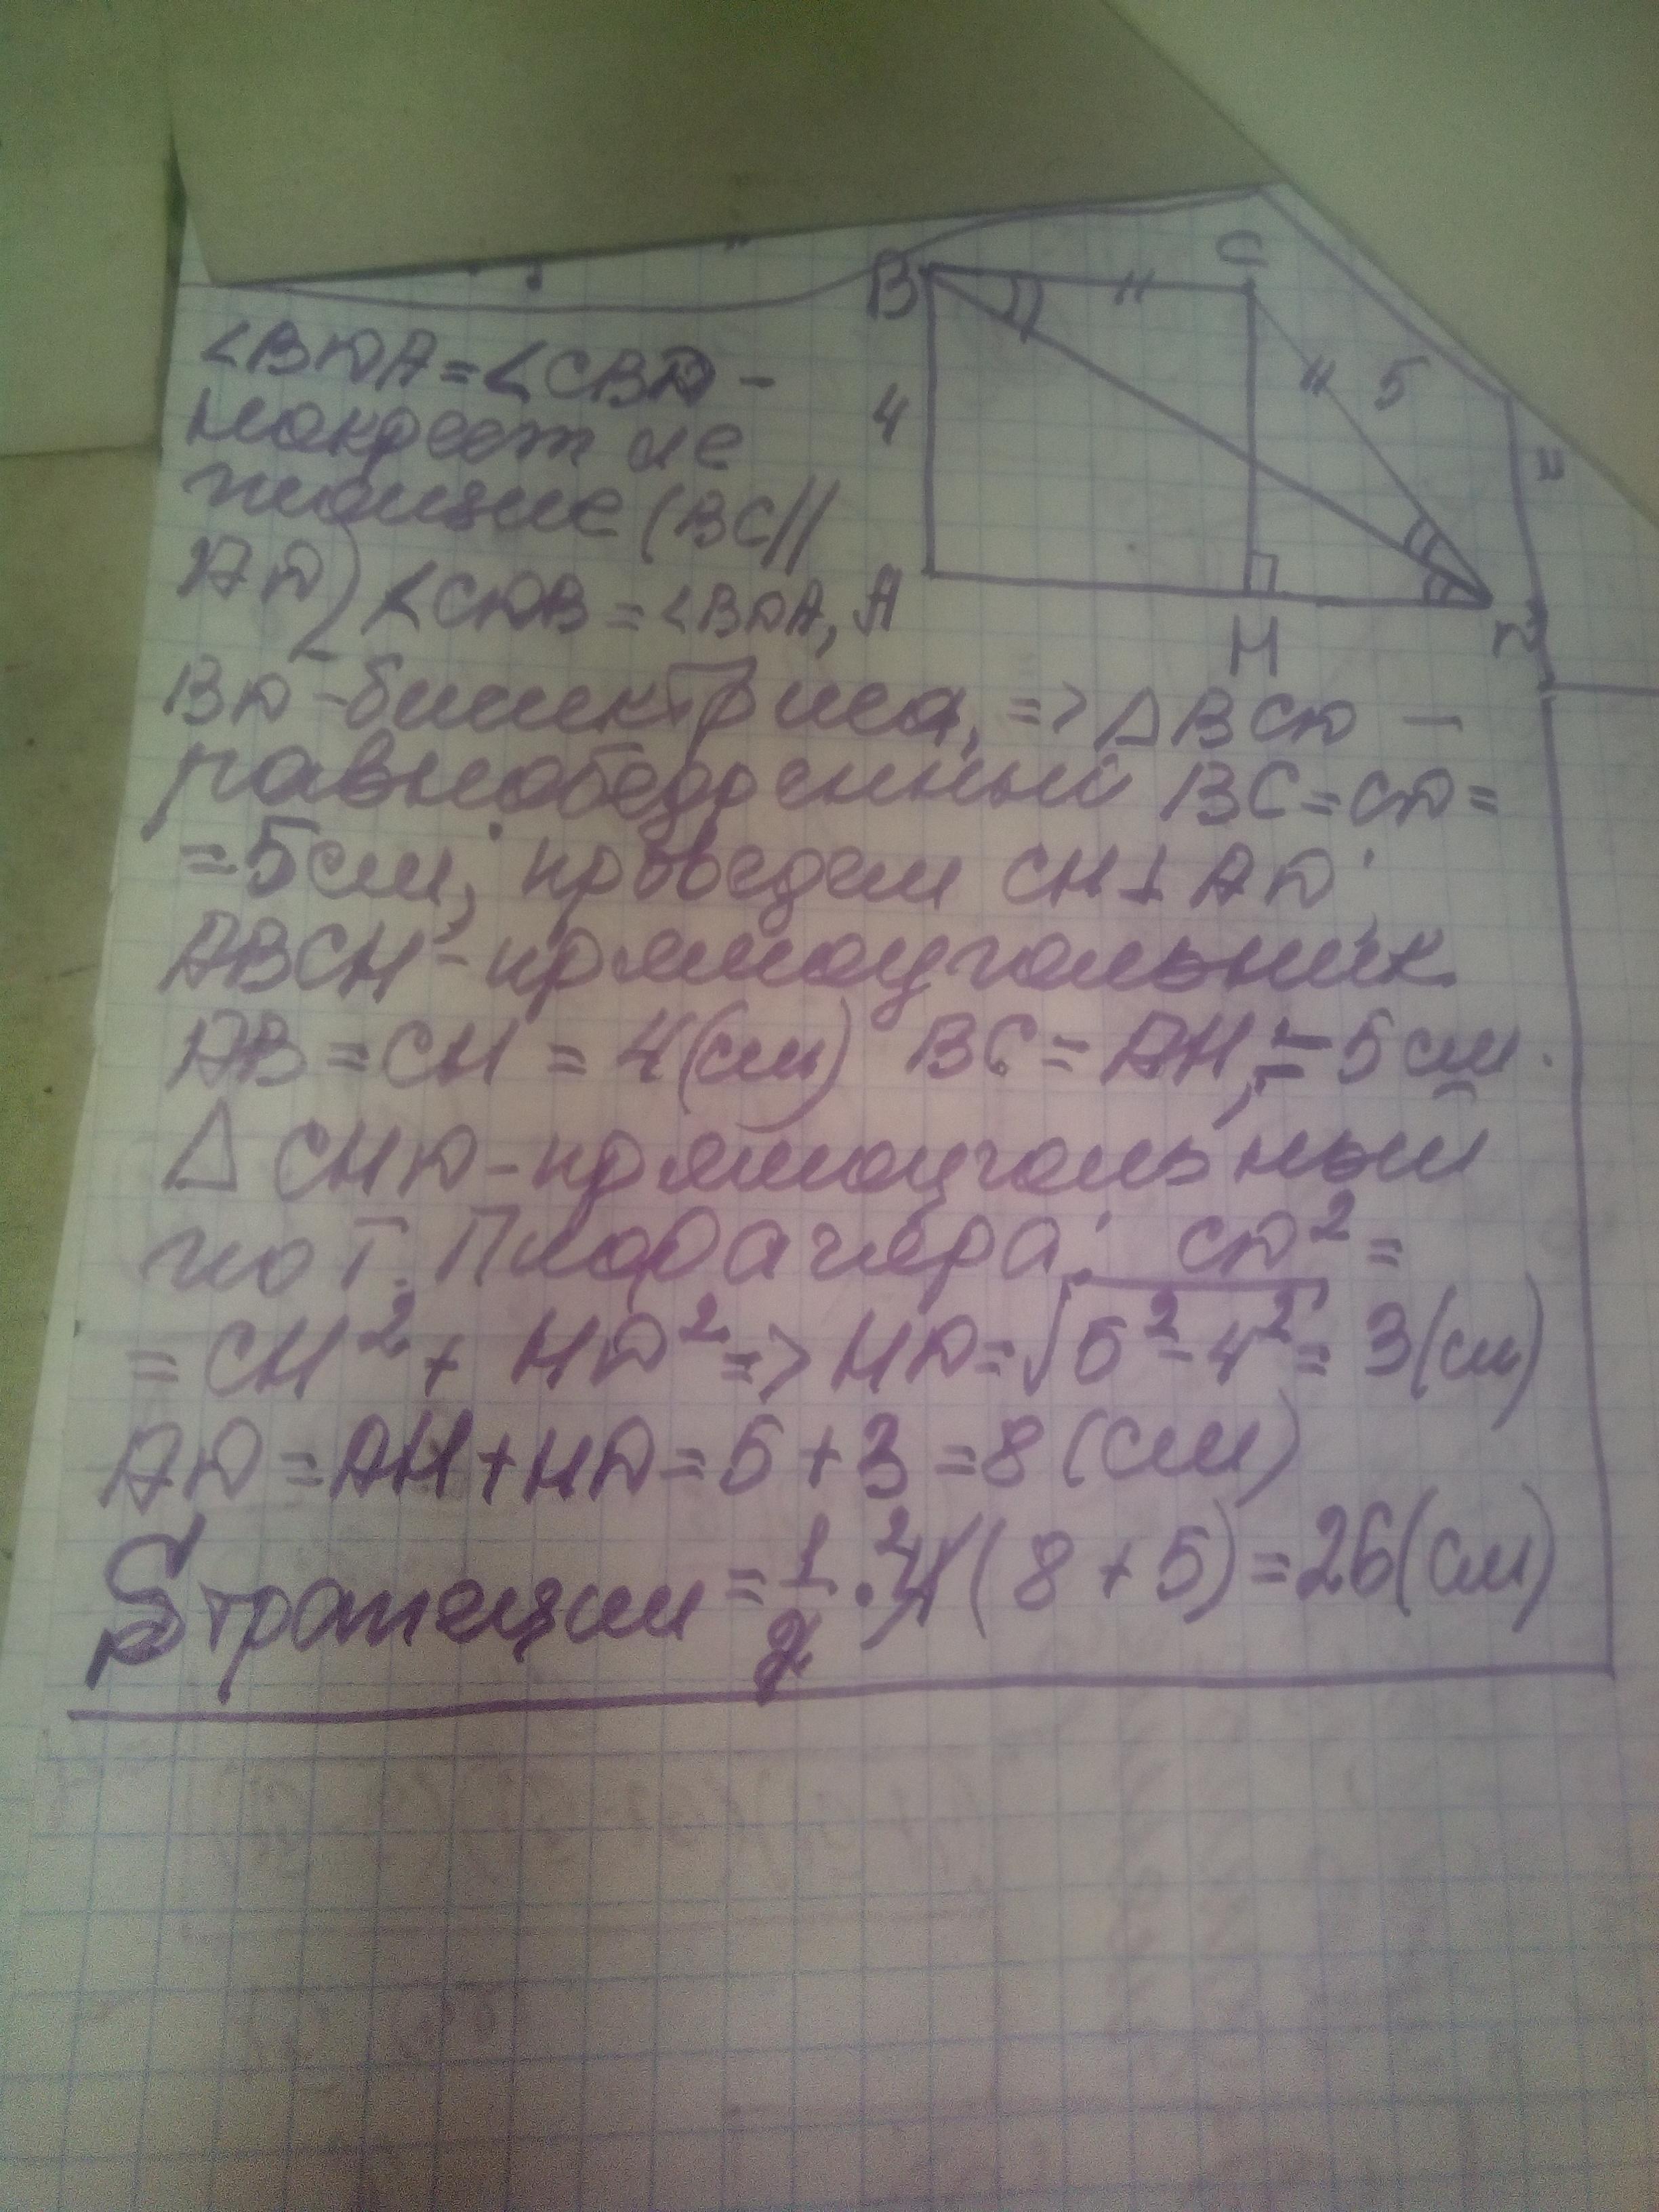 B C
∠BDA=∠CBD -
4 5
накрест ле
жащие (BC//
AD) ∠CDB = ∠BDA, A
H D
BD - биссектриса, => ΔBCD -
равнобедренный BC=CD=
=5см; проведем CH⊥AD;
ABCH - прямоугольник
AB = CH = 4(см) BC = AH, = 5 см.
Δ CHD - прямоугольный
по т. Пифагора: CD² =
= CH² + HD² => HD = √5² - 4² = 3 (см)
AD = AH + HD = 5 + 3 = 8 (см)
Sтрапеции = 1/2 · 4 (8 + 5) = 26 (см)